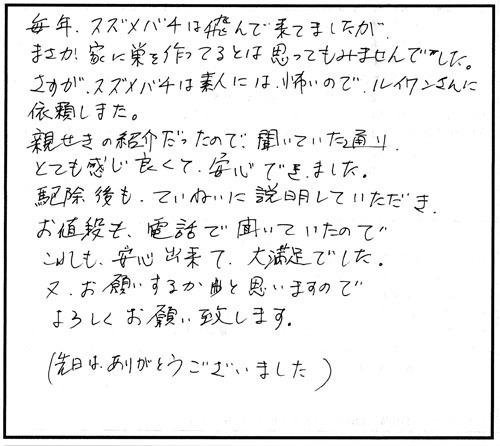 毎年、スズメバチは飛んで来てましたが、
まさか家に巣を作ってるとは思ってもみませんでした。
さすが、スズメバチは素人には、怖いので、ルイワンさんに
依頼しまた。
親せきの紹介だったので、聞いていた通り、
とても感じ良くて、安心できました。
駆除後も、ていねいに説明していただき、
お値段も、電話で聞いていたので
これも、安心出来て、大満足でした。
又、お願いするかと思いますので
よろしくお願い致します。
(先日は、ありがとうございました)